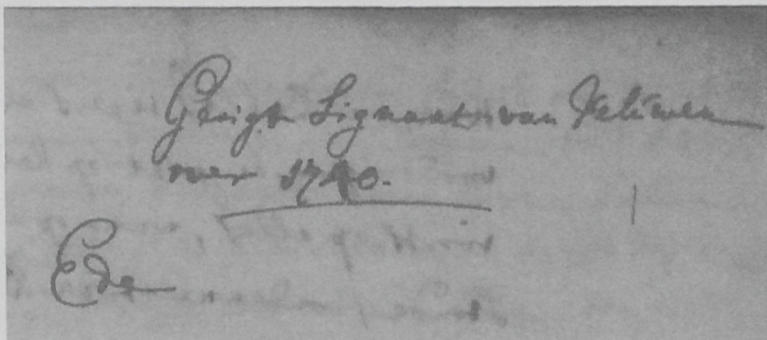 Gerigts Signaat van Veluwen
over 1740.
Ede